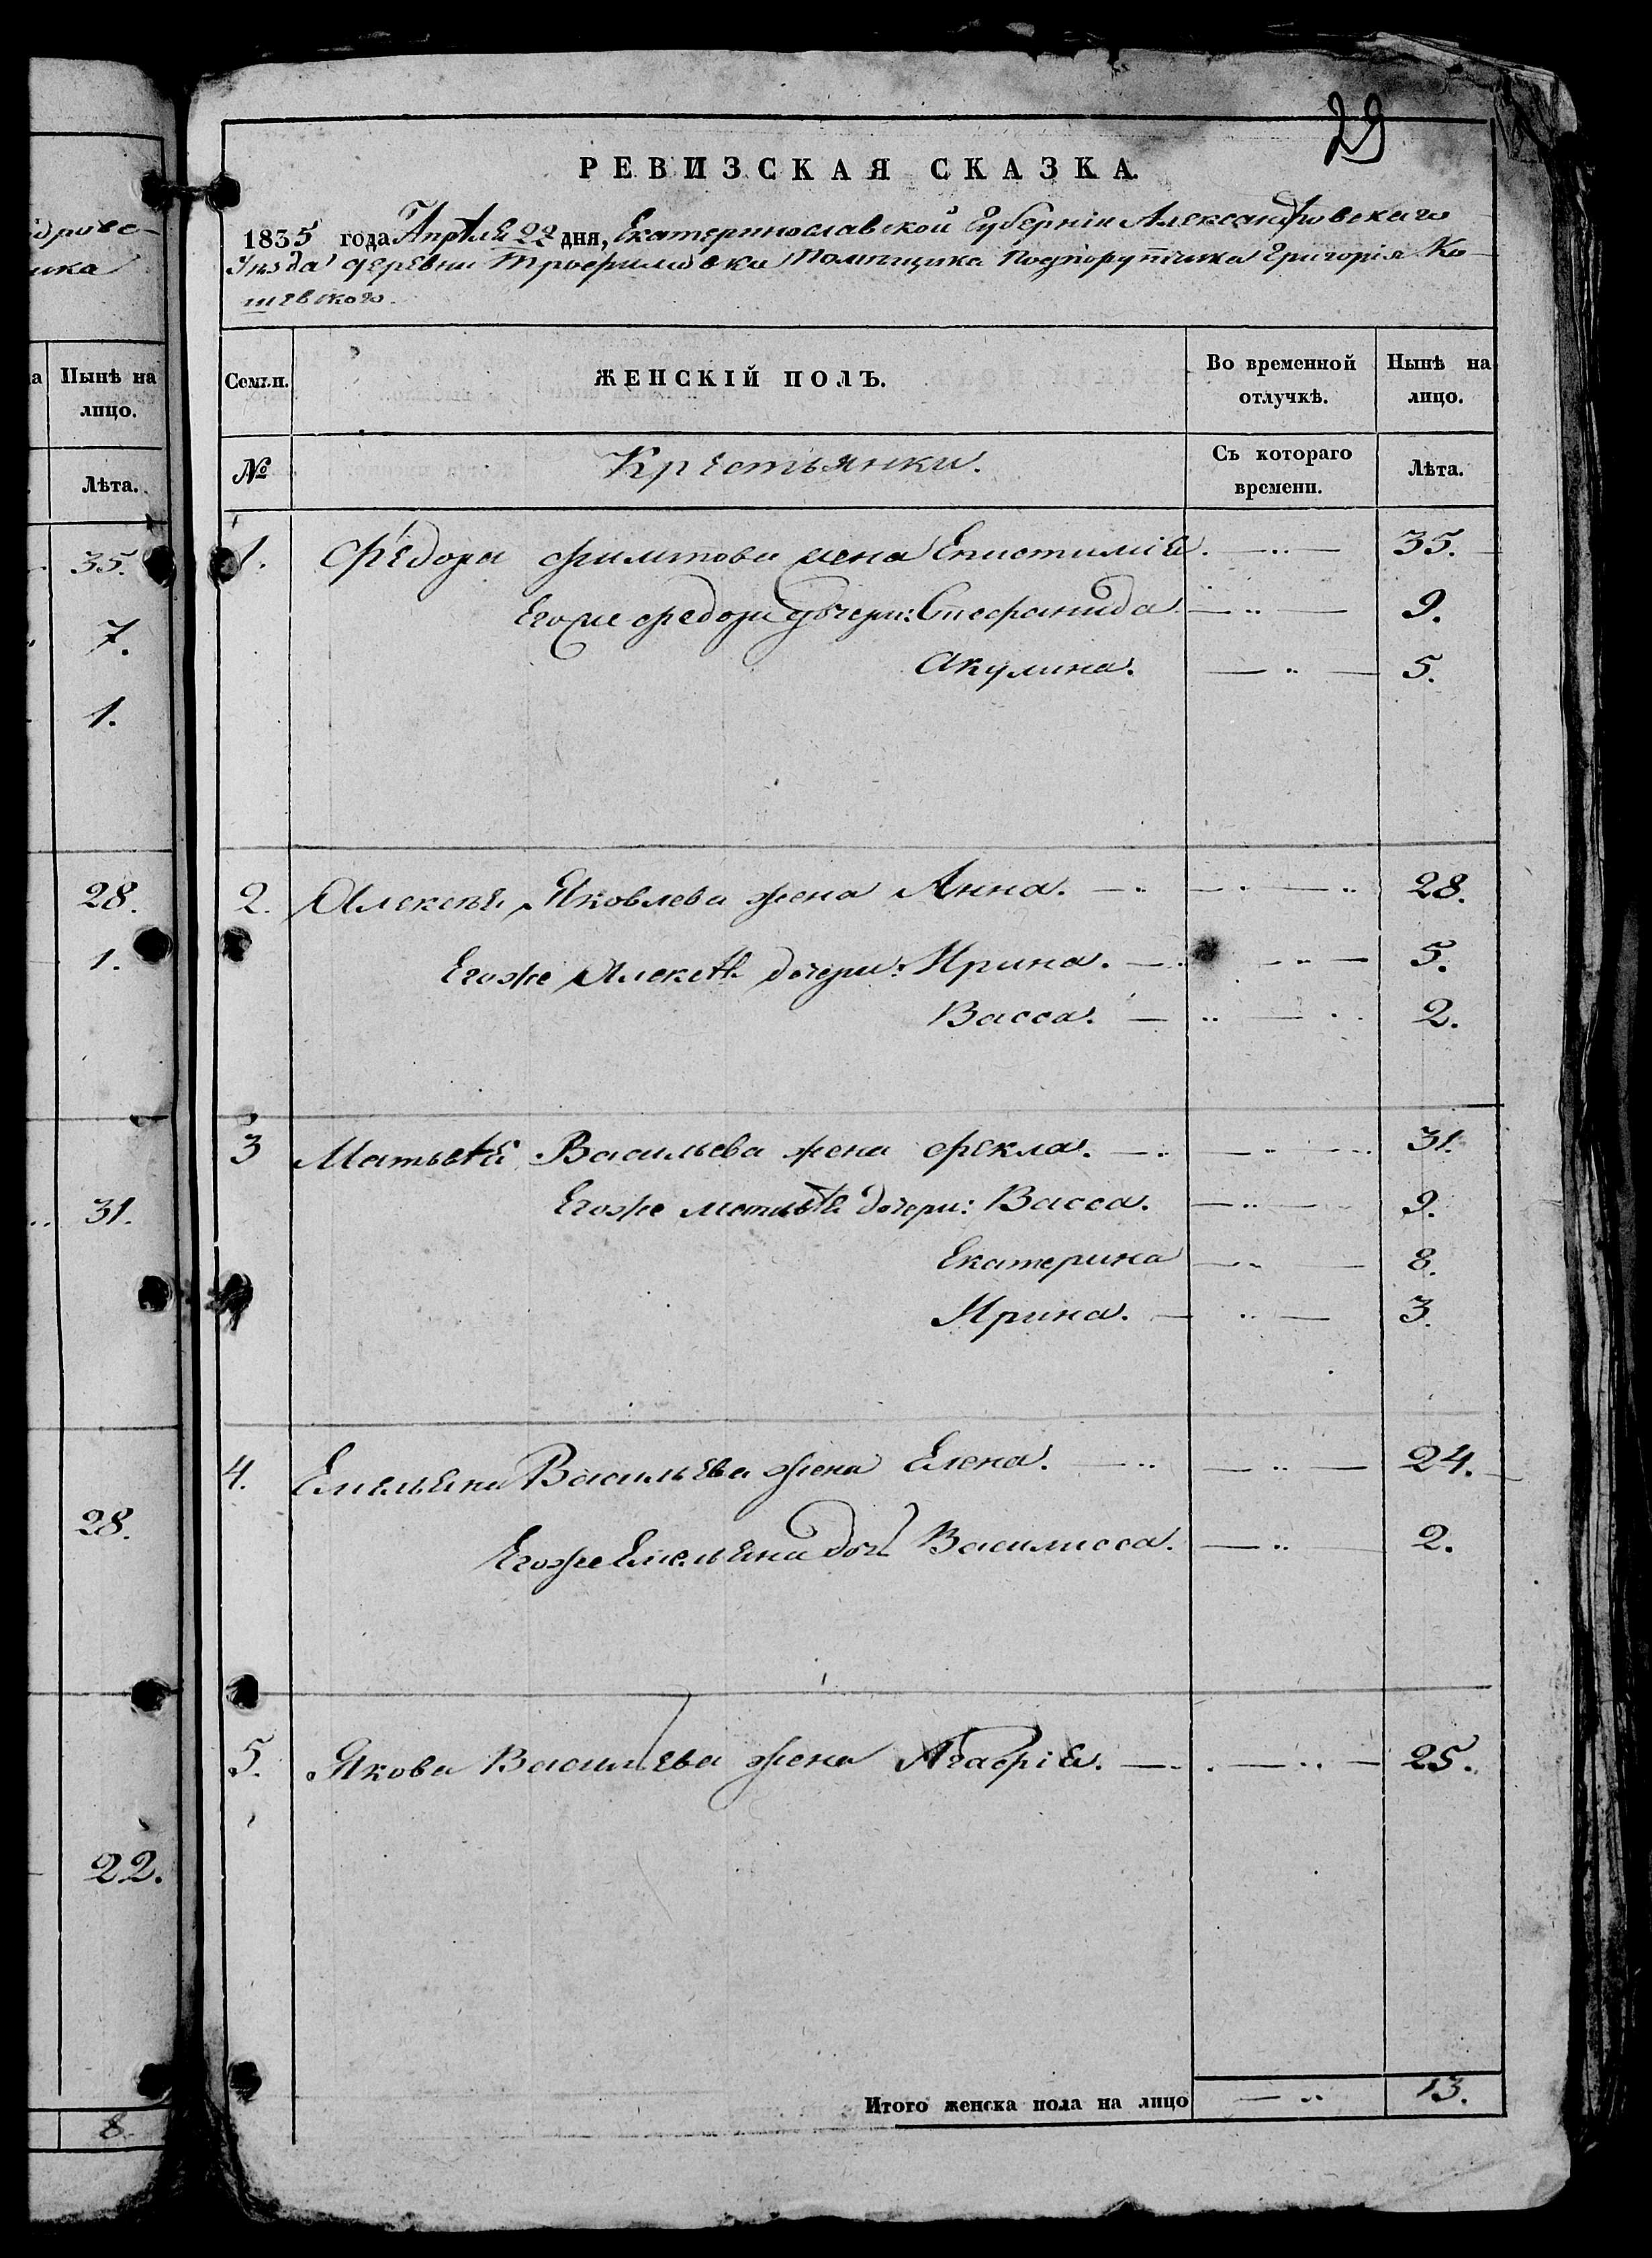 дрово-
ика
а Нынѣ на
лицо.
Лѣта.
35.
7.
1.
28.
1.
31.
28.
22.
8.
29
РЕВИЗСКАЯ СКАЗКА.
1835 года Апрѣля 22 дня, Екатеринославской Губерніи Александровскаго
Уѣзда деревни Трофимовки Помѣщика Подпорутчика Григорія Ко-
шевского.
Семьи. ЖЕНСКІЙ ПОЛЪ. Во временной отлучкѣ. Нынѣ на лицо.
№ Крестьянки. Съ котораго времени. Лѣта.
1. Федора жена Епистимія. 35.
Егоже Федора дочери: Стефанида 9.
Акулина. 5.
2. Алексѣя Яковлева жена Анна. 28.
Егоже Алексѣя дочери: Ирина. 5.
Васса. 2.
3 Матвѣя Васильева жена Фекла. 31.
Егоже Матвѣя дочери: Васса. 9.
Екатерина 8.
Ирина. 3.
4. Емельяна Васильева жена Елена. 24.
Егоже Емельяна дочь Василисса. 2.
5. Якова Васильева жена Агафія. 25.
Итого женска пола на лицо 13.